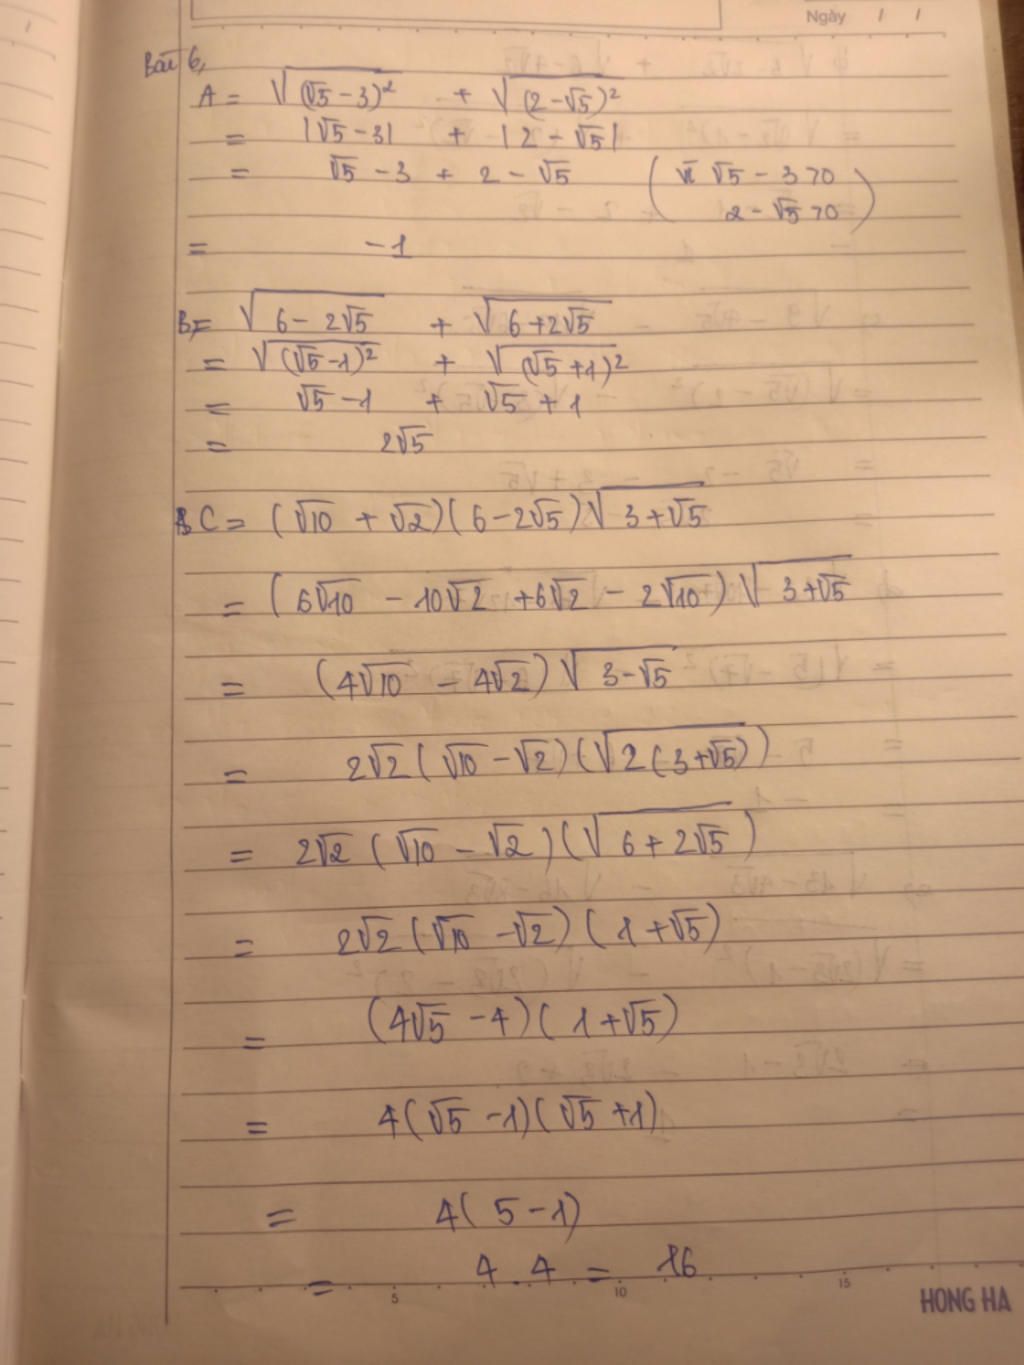 Ngày / /
Bài 6,
A = √(√5 - 3)² + √(2 - √5)²
= |√5 - 3| + |2 - √5|
= √5 - 3 + 2 - √5 (vì √5 - 3 > 0
2 - √5 > 0)
= -1
B, = √6 - 2√5 + √6 + 2√5
= √(√5 - 1)² + √(√5 + 1)²
= √5 - 1 + √5 + 1
= 2√5
C = (√10 + √2)(6 - 2√5)√3 + √5
= (6√10 - 10√2 + 6√2 - 2√10)√3 + √5
= (4√10 - 4√2)√3 - √5
= 2√2(√10 - √2)(√2(3 + √5))
= 2√2(√10 - √2)(√6 + 2√5)
= 2√2(√10 - √2)(1 + √5)
= (4√5 - 4)(1 + √5)
= 4(√5 - 1)(√5 + 1)
= 4(5 - 1)
= 4 . 4 = 16
5 10 15 HONG HA